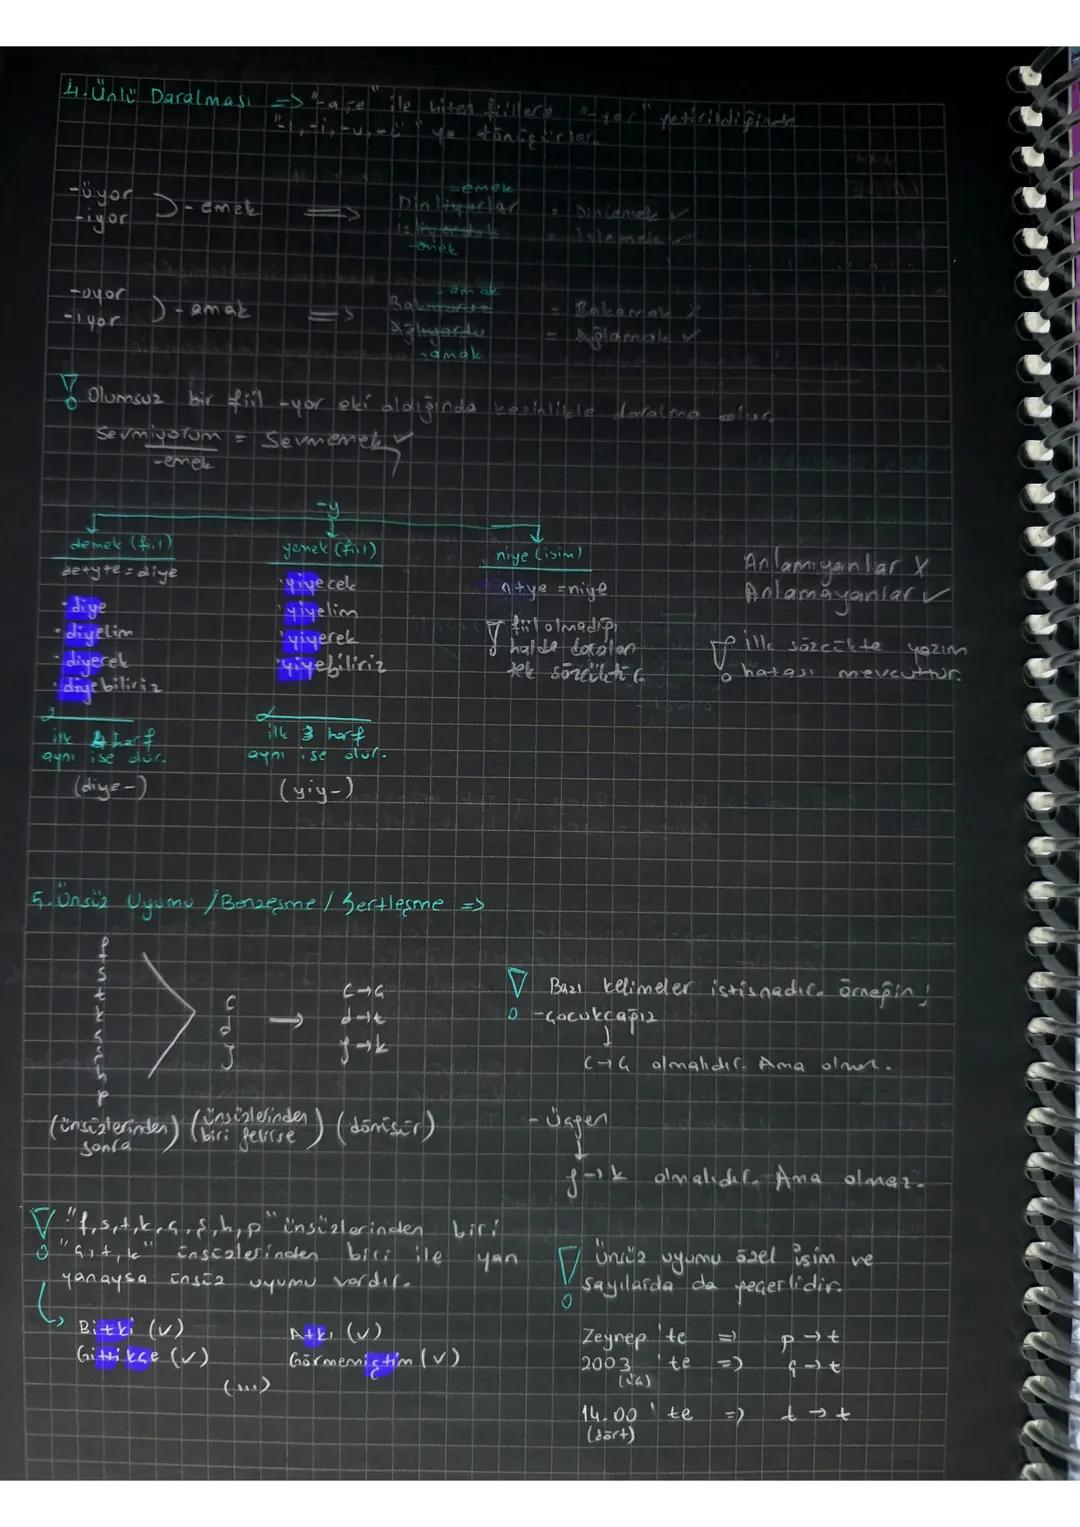 4. Ünlü Daralması => "-a, -e" ile biten fiillere "-yor" getirildiğinde
"-ı, -i, -u, -ü" ya dönüştürler.
-üyor
-iyor
- emek
=>
-emek
Dinliyorlar = Dinlemek ✓
= İşlemek ✓
-emek
-uyor
-ıyor
- amak
=>
-amak
= Bakamak X
Ağlıyordu = Ağlamak ✓
-amak
Olumsuz bir fiil -yor eki aldığında kesinlikle daralma olur.
Sevmiyorum = Sevmemek ✓
-emek
-y
demek (fiil)
de+y+e = diye
- diye
- diyelim
- diyerek
- diyebiliriz
ilk 4 harf
aynı ise olur.
(diye-)
yemek (fiil)
yiyecek
yiyelim
yiyerek
yiyebiliriz
ilk 3 harf
aynı ise olur.
(yiy-)
niye (isim)
n+ye = niye
fiil olmadığı
halde daralan
tek sözcüktür.
Anlamıyanlar X
Anlamayanlar ✓
ilk sözcükte yazım
hatası mevcuttur.
5. Ünsüz Uyumu / Benzeşme / Sertleşme =>
f
s
t
k
ç
ş
h
p
c
d
g
→
c→ç
d→t
g→k
(ünsüzlerinden sonra) (ünsüzlerinden biri gelirse) (dönüşür)
Bazı kelimeler istisnadır. örneğin;
- çocukcağız
c→ç olmalıdır. Ama olmaz.
- Üçgen
g→k olmalıdır. Ama olmaz.
"f,s,t,k,ç,ş,h,p" ünsüzlerinden biri
"ç,t,k" ünsüzlerinden biri ile yan
yanaysa ünsüz uyumu vardır.
Bitki (✓) Atkı (✓)
Gittikçe (✓) Görmemiştim (✓)
(...)
Ünsüz uyumu özel isim ve
sayılarda da geçerlidir.
Zeynep 'te => p → t
2003 'te => ç → t
(üç)
14.00 'te => t → t
(dört)